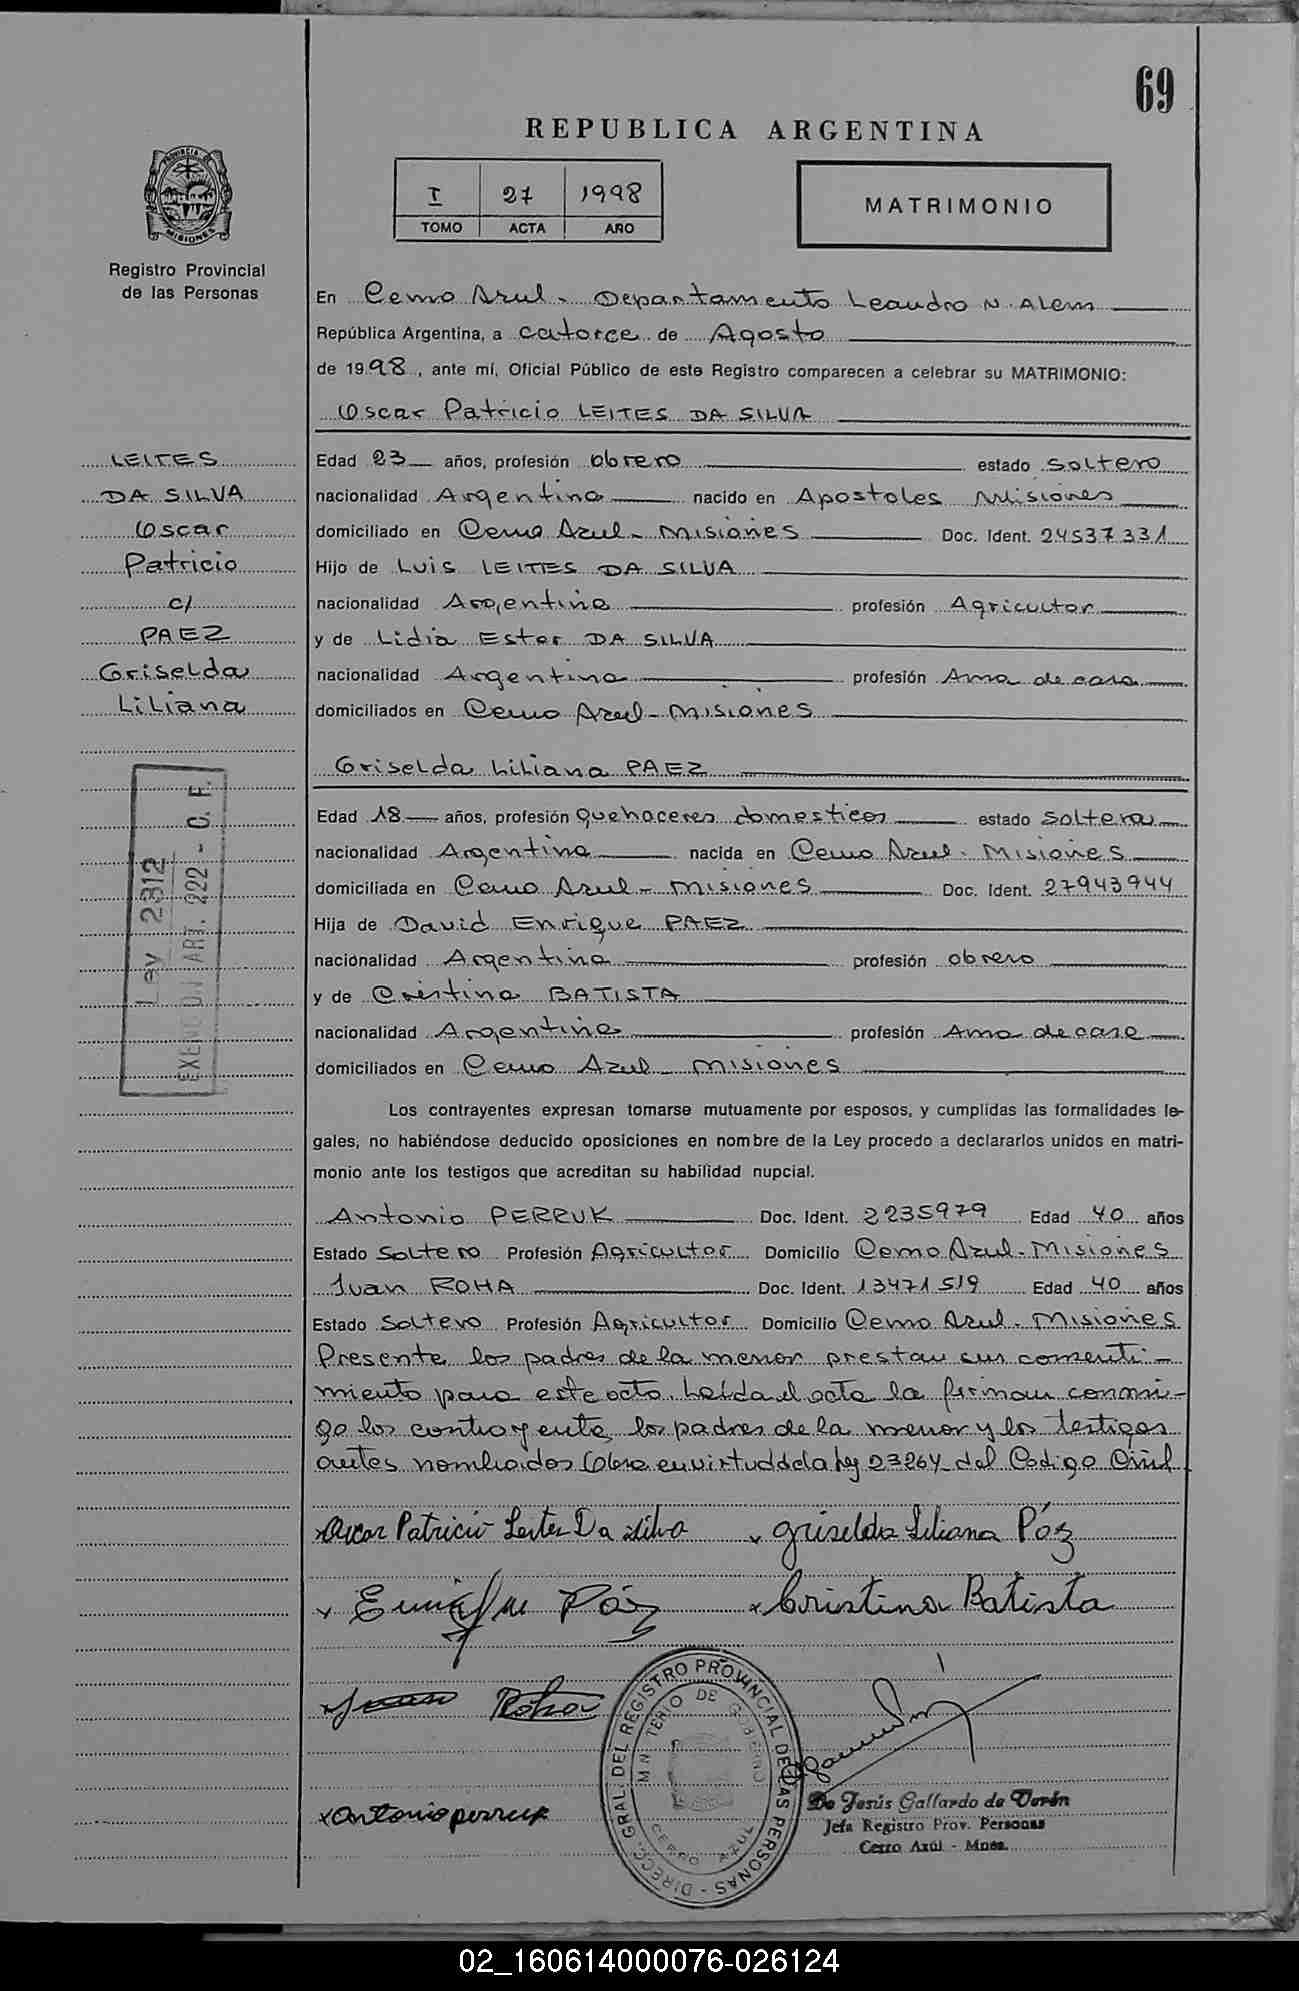 69
REPUBLICA ARGENTINA
I 27 1998
TOMO ACTA AÑO
MATRIMONIO
PROVINCIA DE MISIONES
Registro Provincial
de las Personas
En Cerro Azul - Departamento Leandro N. Alem
República Argentina, a catorce de Agosto
de 1998, ante mí, Oficial Público de este Registro comparecen a celebrar su MATRIMONIO:
Oscar Patricio LEITES DA SILVA
LEITES
DA SILVA
Oscar
Patricio
c/
PAEZ
Griselda
Liliana
Ley 2312
EXENCION ART. 222 - C. F.
Edad 23 años, profesión obrero estado soltero
nacionalidad Argentina nacido en Apostoles Misiones
domiciliado en Cerro Azul - Misiones Doc. Ident. 24537331
Hijo de LUIS LEITES DA SILVA
nacionalidad Argentina profesión Agricultor
y de Lidia Ester DA SILVA
nacionalidad Argentina profesión Ama de casa
domiciliados en Cerro Azul - Misiones
Griselda Liliana PAEZ
Edad 18 años, profesión Quehaceres domesticos estado soltera
nacionalidad Argentina nacida en Cerro Azul - Misiones
domiciliada en Cerro Azul - Misiones Doc. Ident. 27943944
Hija de David Enrique PAEZ
nacionalidad Argentina profesión obrero
y de Cristina BATISTA
nacionalidad Argentina profesión Ama de casa
domiciliados en Cerro Azul - Misiones
Los contrayentes expresan tomarse mutuamente por esposos, y cumplidas las formalidades le-
gales, no habiéndose deducido oposiciones en nombre de la Ley procedo a declararlos unidos en matri-
monio ante los testigos que acreditan su habilidad nupcial.
Antonio PERRUK Doc. Ident. 2235979 Edad 40 años
Estado Soltero Profesión Agricultor Domicilio Cerro Azul - Misiones
Juan ROHA Doc. Ident. 13471519 Edad 40 años
Estado Soltero Profesión Agricultor Domicilio Cerro Azul - Misiones
Presente los padres de la menor prestan su consenti-
miento para este acto. Leída el acta la firman conmi-
go los contrayente, los padres de la menor y los testigos
antes nombrados en virtud de la ley 23264 del Codigo Civil
x Oscar Patricio Leites Da Silva x Griselda Liliana Páz
x Enrique Páz x Cristina Batista
x Juan Roha
x antonio perruk
DIRECC. GRAL. DEL REGISTRO PROVINCIAL DE LAS PERSONAS -
MINISTERIO DE GOBIERNO
CERRO AZUL
De Jesús Gallardo de Verón
Jefa Registro Prov. Personas
Cerro Azúl - Mnes.
02_160614000076-026124